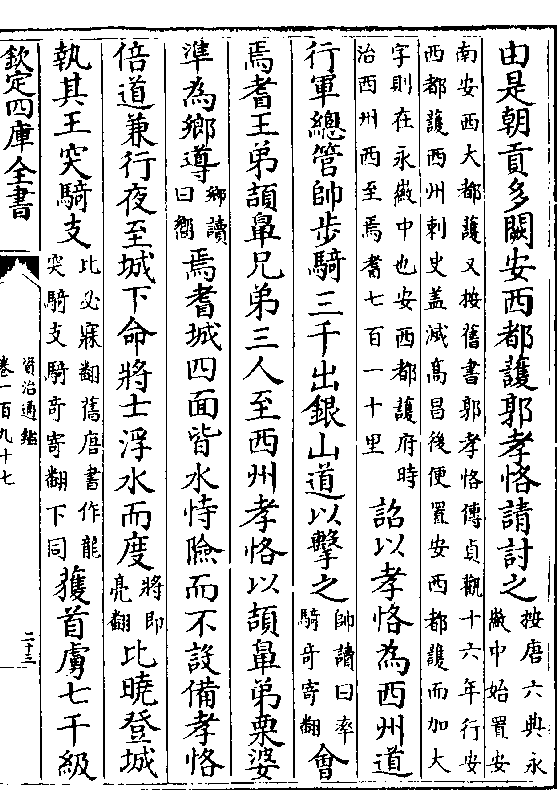 由是朝貢多闕安西都護郭孝恪請討之按唐六典永
徽中始置安
南安西大都護又按舊書郭孝恪傳貞觀十六年行安
西都護西州刺史蓋滅高昌後便置安西都護而加大
字則在永徽中也安西都護府時
治西州西至焉耆七百一十里
詔以孝恪為西州道
行軍總管帥步騎三千出銀山道以擊之帥讀曰率
騎奇寄翻
會
焉耆王弟頡鼻兄弟三人至西州孝恪以頡鼻弟栗婆
準為鄉導鄉讀
曰嚮
焉耆城四面皆水恃險而不設備孝恪
倍道兼行夜至城下命將士浮水而度將即
亮翻
比曉登城
執其王突騎支比必寐翻舊唐書作龍
突騎支騎奇寄翻下同
獲首虜七千級
欽定四庫全書
資治通鑑
卷一百九十七
二十三